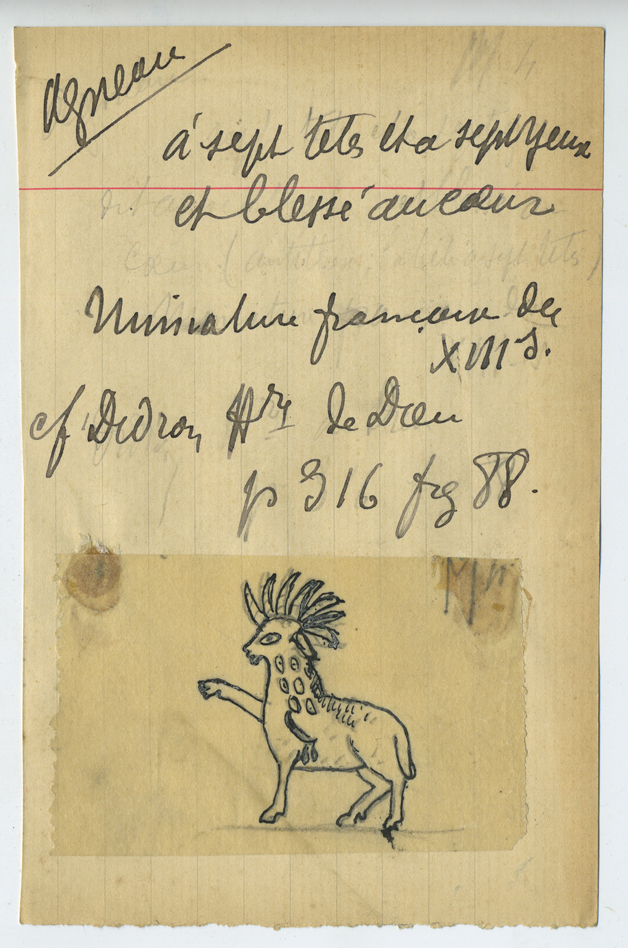 Agneau
à sept tets et a sept yeux
et blessé au cœur
Miniature française du
XIII S.
cf Didron Hre de Dieu
p 316 fig 88.